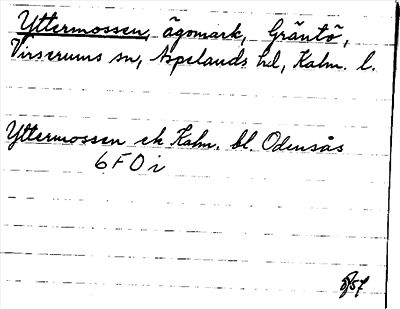 Yttermossen, ägomark, Gräntö,
Virserums sn, Aspelands hd, Kalm. l.
Yttermossen ek Kalm. bl. Odensås
6F0i